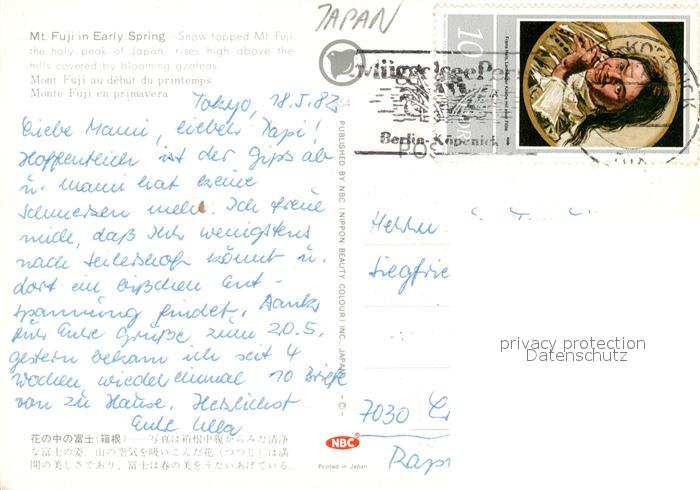 JAPAN
Mt. Fuji in Early Spring — Snow-topped Mt. Fuji,
the holy peak of Japan, rises high above the
hills covered by blooming azaleas.
Mont Fuji au début du printemps
Monte Fuji en primavera
Tokyo, 18.5.83
Liebe Mami, lieber Papi!
Hoffentlich ist der Gips ab
u. Mami hat keine
Schmerzen mehr. Ich freue
mich, daß Ihr wenigstens
nach Seilershof könnt u.
dort ein bißchen Ent-
spannung findet. Danke
für Eure Grüße zum 20.5.
gestern bekam ich seit 4
Wochen wieder einmal 10 Briefe
von zu Hause. Herzlichst
Eure Ulla
花の中の富士(箱根)——写真は箱根中腹からみた清浄
な富士の姿。山の空気を吸いこんだ花(つつじ)は満
開の美しさであり、富士は春の美をうたいあげている。
PUBLISHED BY NBC (NIPPON BEAUTY COLOUR) INC. JAPAN
NBC
Printed in Japan
10
Müggelsee
Berlin-Köpenick
Herrn
Siegfrie
7030
privacy protection
Datenschutz